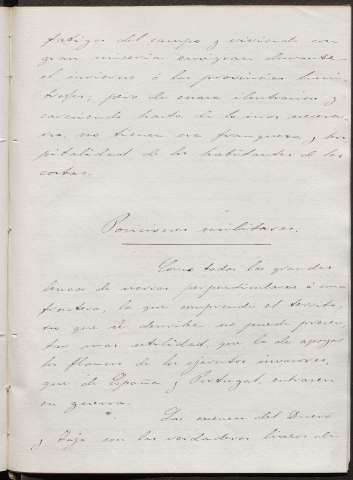 fatigas del campo y viviendo con
gran miseria emigran durante
el invierno á las provincias limi-
trofes; pero de escasa ilustracion y
careciendo hasta de lo mas necesa-
rio, no tienen esa franqueza y hos-
pitalidad de los habitantes de las
costas.
Posiciones militares.
Como todas las grandes
lineas de sierras perpendiculares á una
frontera, la que comprende el territo-
rio que se describe no puede presen-
tar mas utilidad que la de apoyar
los flancos de los ejércitos invasores,
que de España y Portugal entrasen
en guerra.
Las cuencas del Duero
y Tajo son las verdaderas lineas de